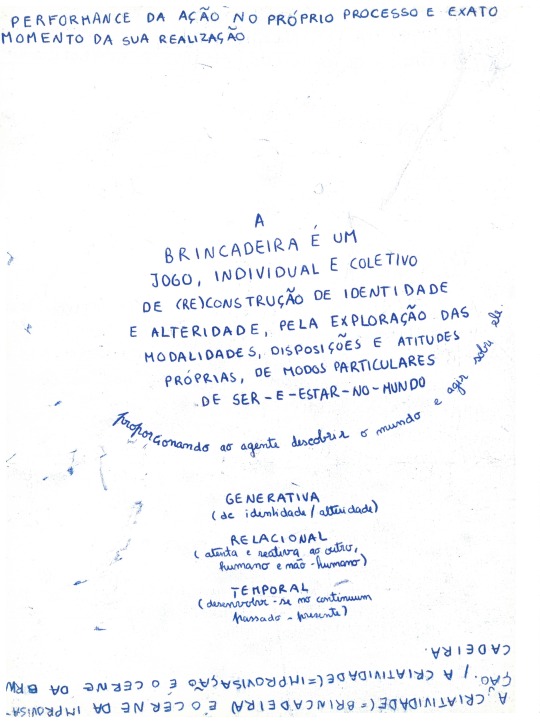 PERFORMANCE DA AÇÃO NO PRÓPRIO PROCESSO E EXATO
MOMENTO DA SUA REALIZAÇÃO
A
BRINCADEIRA É UM
JOGO, INDIVIDUAL E COLETIVO
DE (RE)CONSTRUÇÃO DE IDENTIDADE
E ALTERIDADE, PELA EXPLORAÇÃO DAS
MODALIDADES, DISPOSIÇÕES E ATITUDES
PRÓPRIAS, DE MODOS PARTICULARES
DE SER-E-ESTAR-NO-MUNDO
proporcionando ao agente descobrir o mundo e agir sobre ele.
GENERATIVA
(de identidade/alteridade)
RELACIONAL
(atenta e reativa ao outro,
humano e não-humano)
TEMPORAL
(desenvolver-se no continuum
passado-presente)
A CRIATIVIDADE(=BRINCADEIRA) É O CERNE DA IMPROVISA-
ÇÃO. / A CRIATIVIDADE(=IMPROVISAÇÃO É O CERNE DA BRIN
CADEIRA.